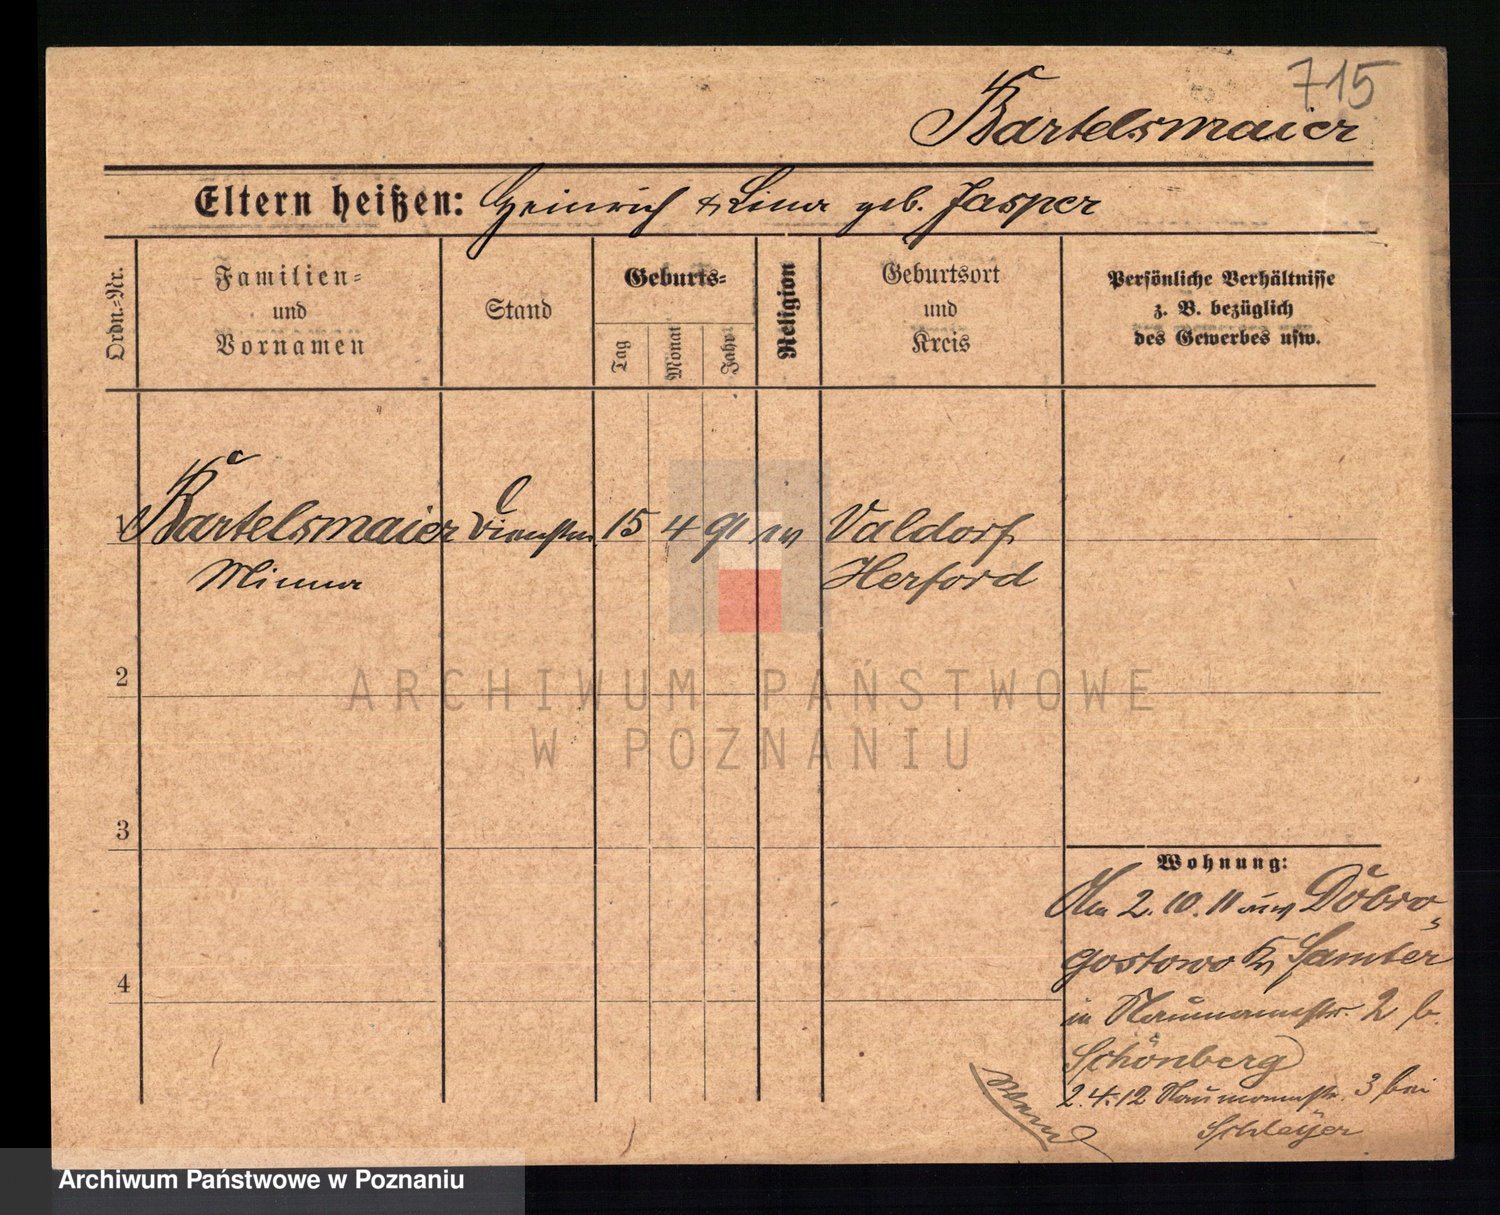 715
Bartelsmaier
Eltern heißen: Heinrich & Lina geb. Jasper
Ordn.-Nr.
Familien-
und
Vornamen
Stand
Geburts-
Tag
Monat
Jahr
Religion
Geburtsort
und
Kreis
Persönliche Verhältnisse
z. B. bezüglich
des Gewerbes usw.
1 Bartelsmaier Dienstm. 15 4 91 ev Valdorf
Minna Herford
2
ARCHIWUM PAŃSTWOWE
W POZNANIU
3
Wohnung:
Am 2. 10. 11 aus Dobro-
gostowo Kr Samter
4
in Naumannstr. 2 b.
Schönberg
2. 4. 12 Naumannstr. 3 bei
Schleyer
Archiwum Państwowe w Poznaniu